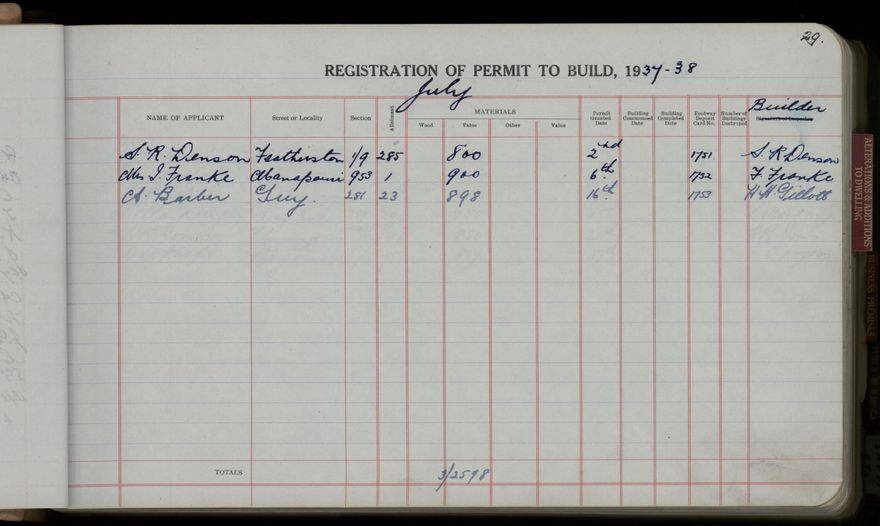 29.
REGISTRATION OF PERMIT TO BUILD, 1937-38
July
NAME OF APPLICANT Street or Locality Section Allotment MATERIALS Wood Value Other Value Permit Granted Date Building Commenced Date Building Completed Date Footway Deposit Card No. Number of Buildings Destroyed Builder
S. R. Denson Featherston 1/9 285 800 2nd 1751 S. R Denson
Mrs I. Franke Manapouri 953 1 900 6th 1752 F. Franke
A. Barber Guy. 281 23 898 16th 1753 H H Gillott
TOTALS 3/2598
ALTERATIONS & ADDITIONS
TO DWELLING